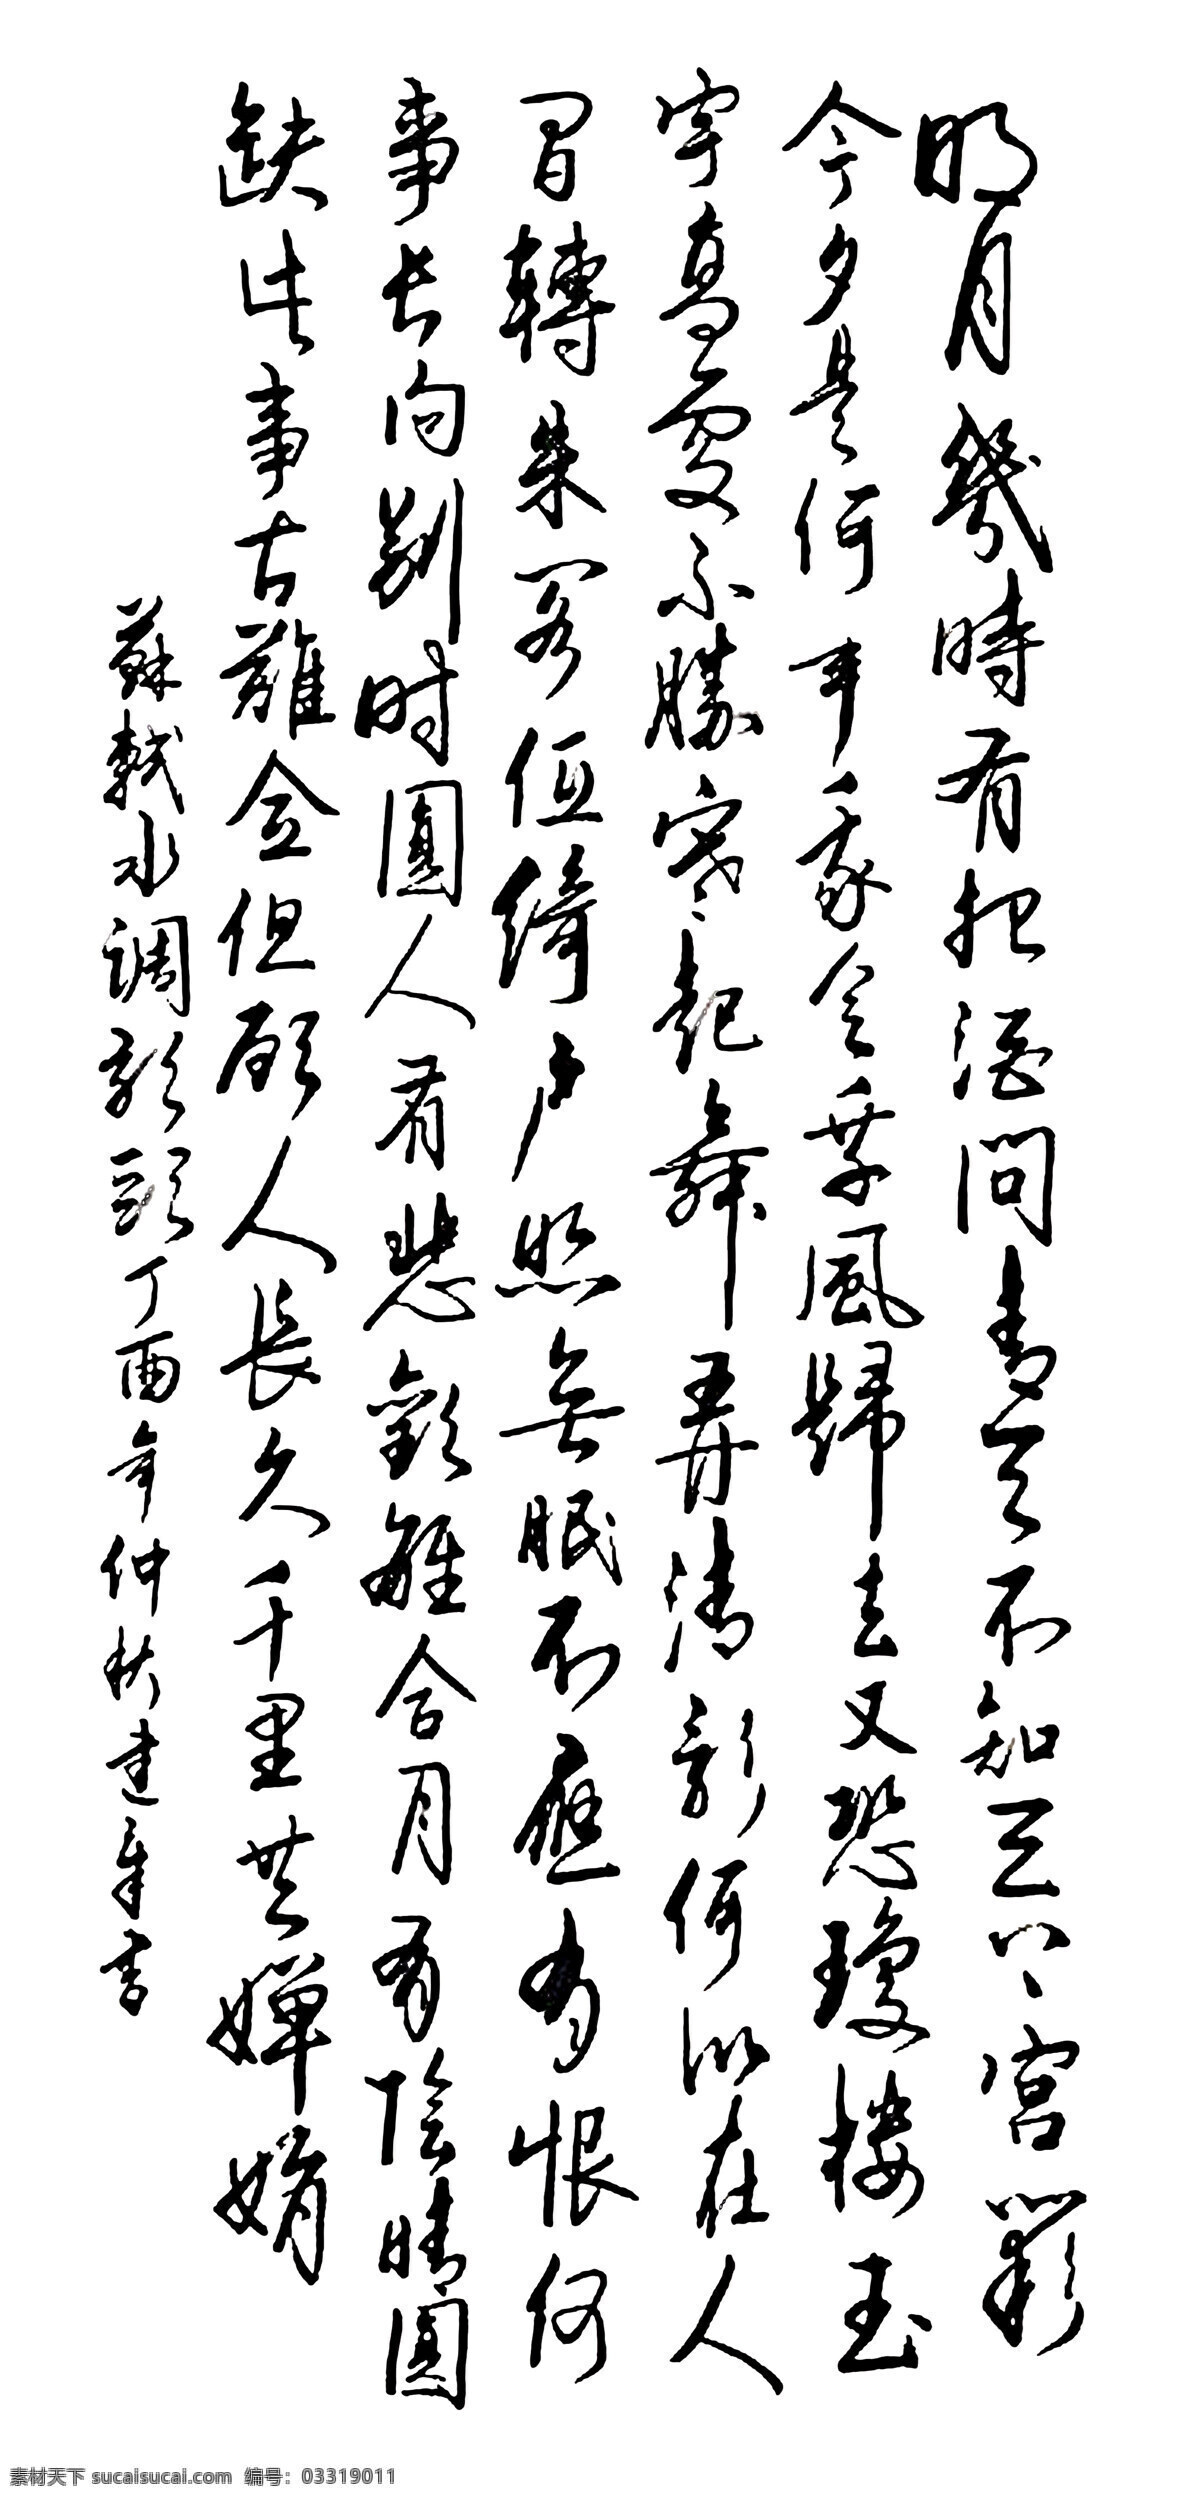 明月幾時有把酒問青天不知天上宮闕
今夕是何年我欲乘風歸去又恐瓊樓玉
宇高處不勝寒起舞弄清影何似在人
間轉朱閣低綺戶照無眠不應有恨何
事長向別時圓人有悲歡離合月有陰晴圓
缺此事古難全但願人長久千里共嬋娟
蘇軾水調歌頭丁酉年仲秋
素材天下 sucaisucai.com 编号：03319011